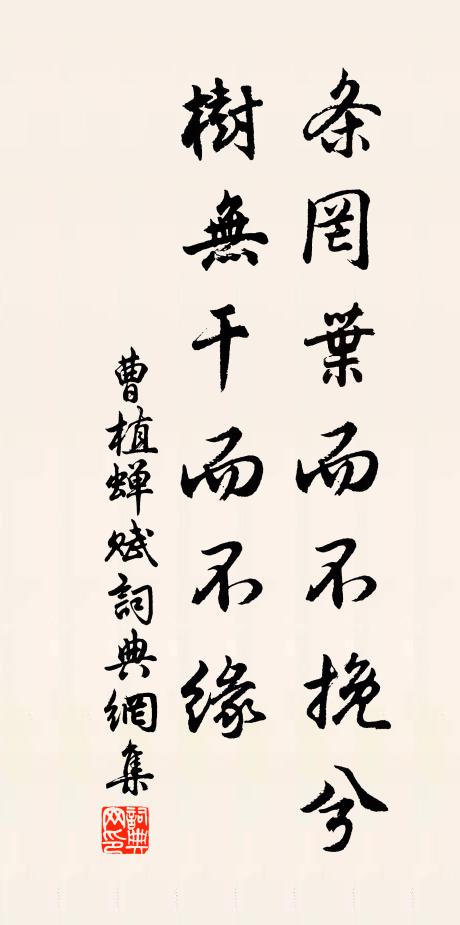 条罔葉而不挽兮
樹無干而不緣
曹植蝉赋詞典網集
詞典网印